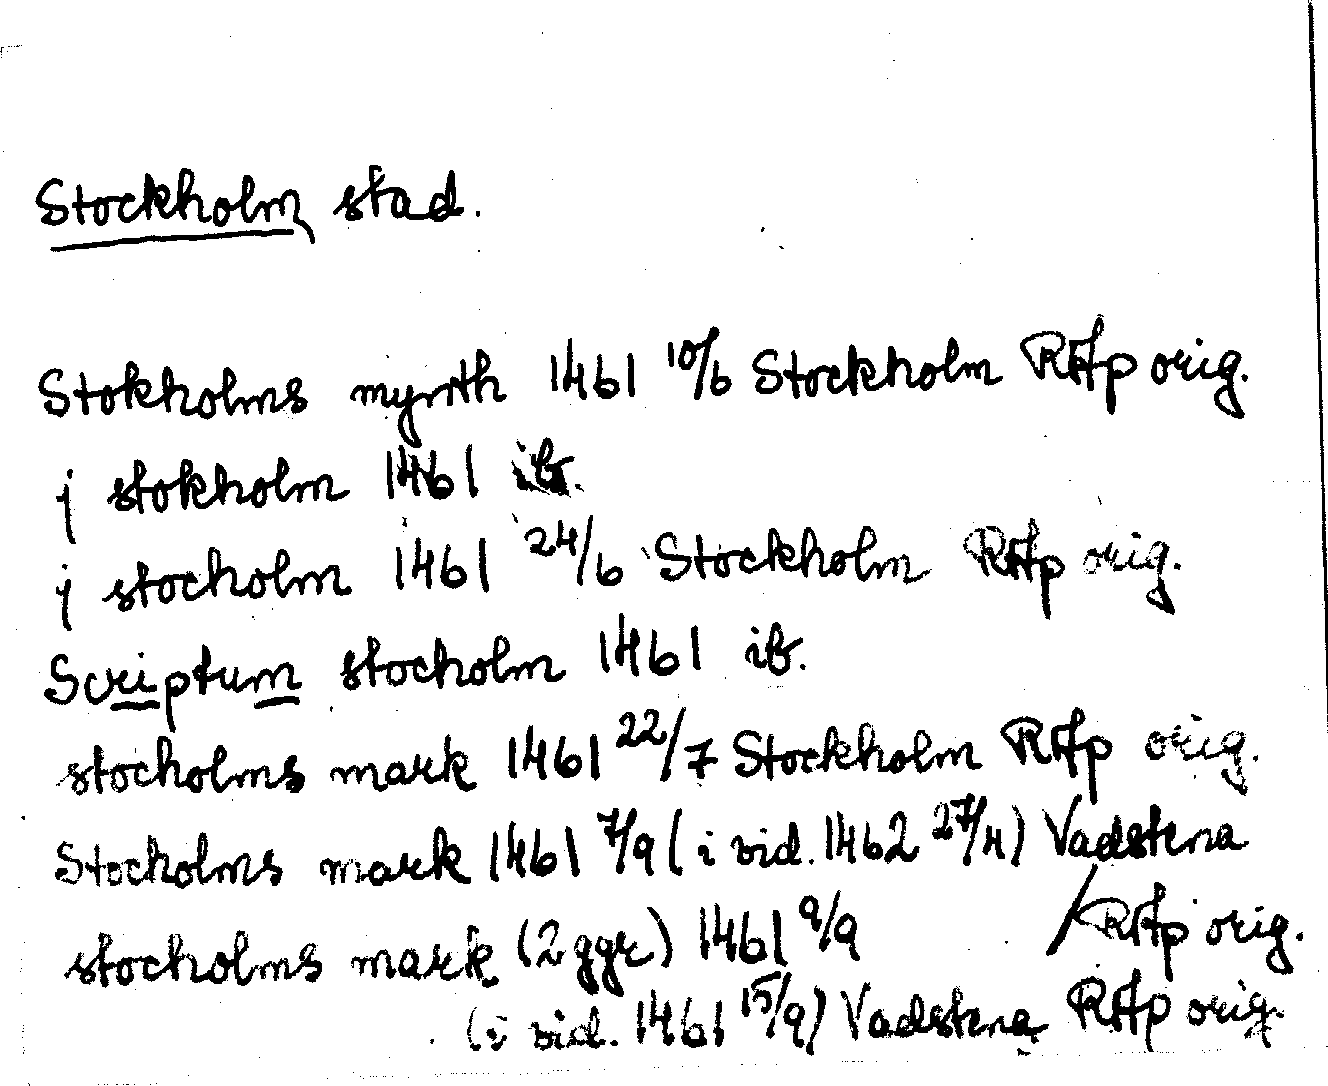 Stockholm, stad.
Stokholms mynth 1461 10/6 Stockholm RAp orig.
j stokholm 1461 ib.
j stocholm 1461 24/6 Stockholm RAp orig.
Scriptum stocholm 1461 ib.
stocholms mark 1461 22/7 Stockholm RAp orig.
Stocholms mark 1461 7/9 (i vid. 1462 27/4) Vadstena
/RAp orig.
stocholms mark (2 ggr) 1461 9/9
(i vid. 1461 15/9) Vadstena RAp orig.